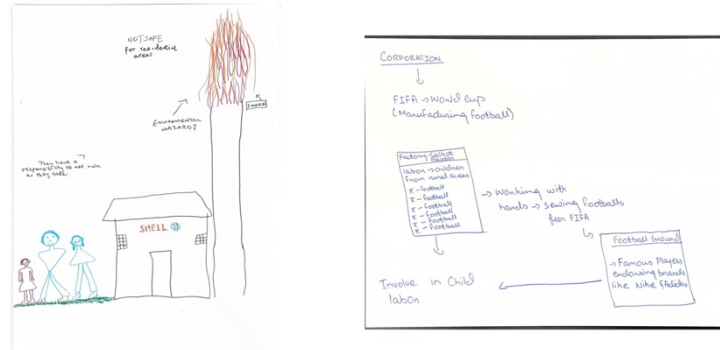 NOT SAFE
for residential
areas
ENVIRONMENTAL
HAZARD?
SMOKE
They have a
responsibility to not ruin
SHELL
CORPORATION
FIFA → World Cup
(Manufacturing football)
Factory-Sialkot
labor → children
from rural areas
π - football
π - football
π - football
π - football
π - football
π - football
→ Working with
hands → sewing footballs
for FIFA
Football (mound)
→ Famous Players
endorsing brands
like Nike & Adidas
Involve in Child
labor